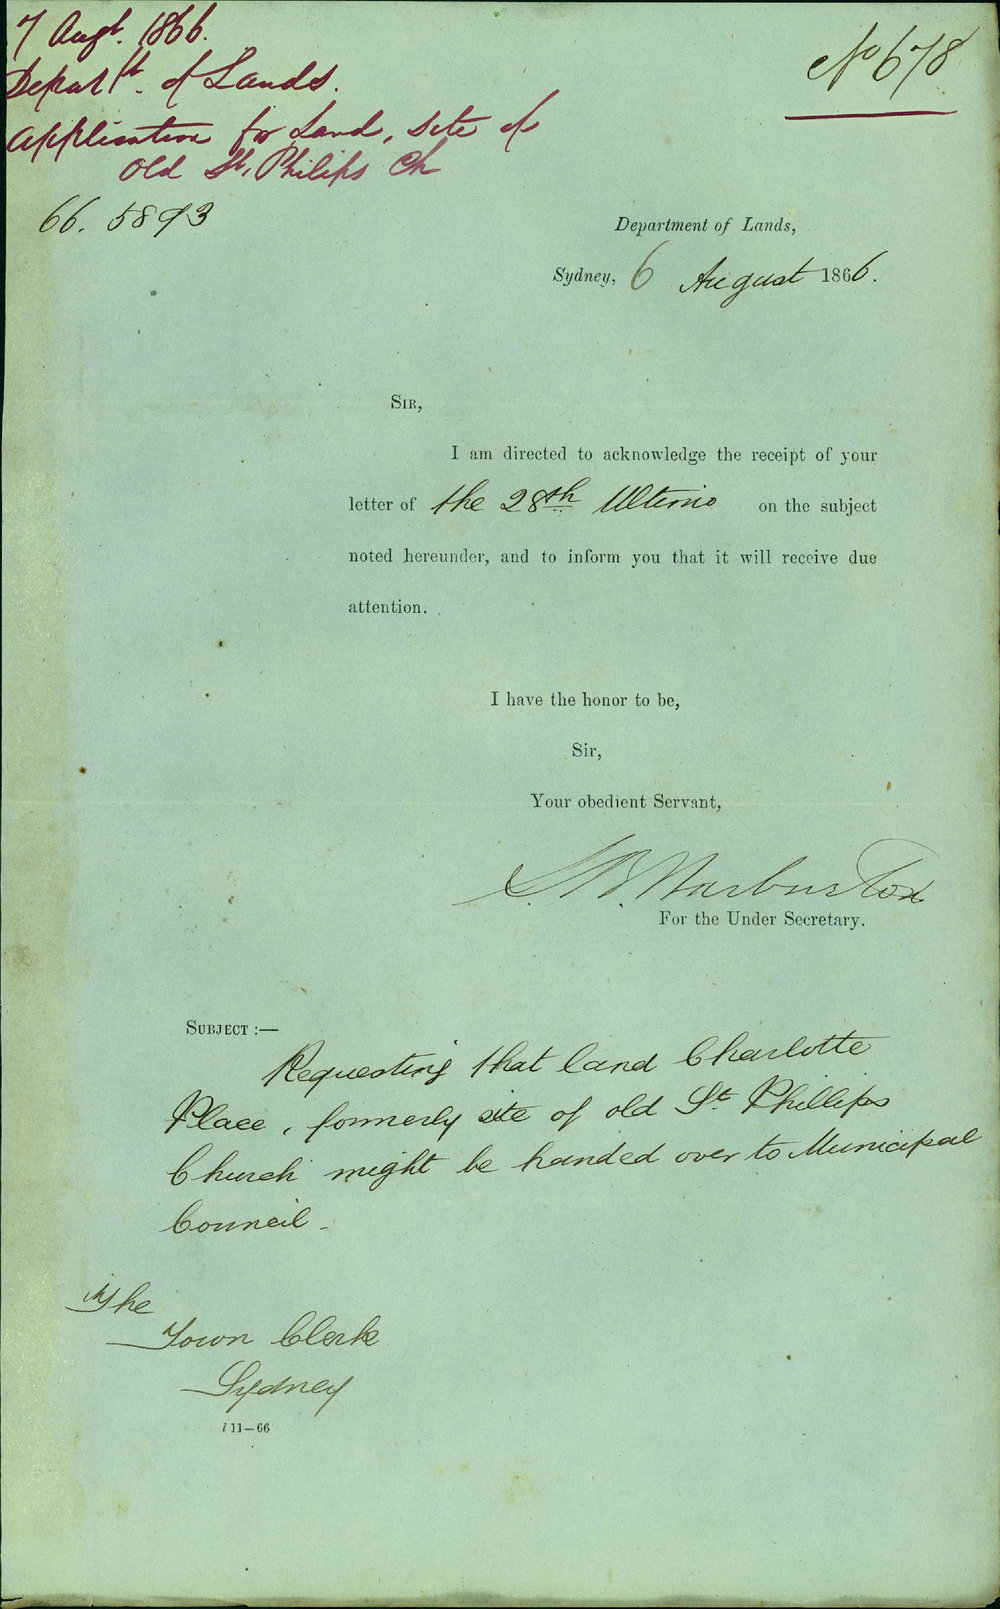 7 Augt. 1866.
Departt. of Lands.
Application for Land, site of
Old St. Philips Ch
No 678
66. 5893
Department of Lands,
Sydney, 6 August 1866.
SIR,
I am directed to acknowledge the receipt of your
letter of the 28th Ultimo on the subject
noted hereunder, and to inform you that it will receive due
attention.
I have the honor to be,
Sir,
Your obedient Servant,
S. B. Warburton
For the Under Secretary.
SUBJECT :—
Requesting that land Charlotte
Place, formerly site of old St. Phillips
Church might be handed over to Municipal
Council -
The
Town Clerk
Sydney
l 11—66